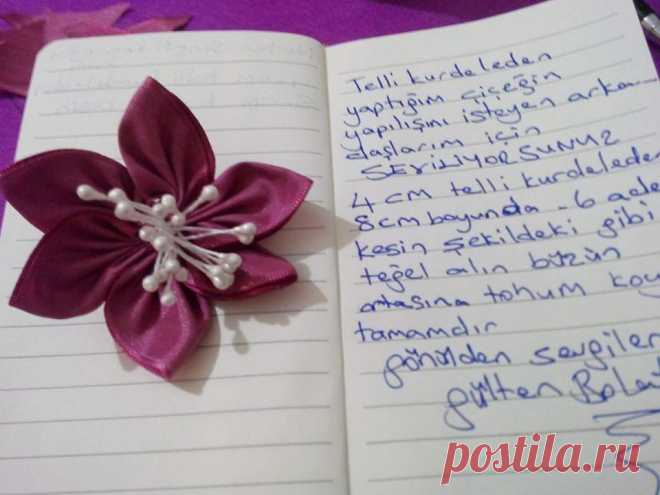 Telli kurdeleden
yaptığım çiçeğin
yapılışını isteyen arka
daşlarım için
SERİLİYORSUNUZ
4 cm telli kurdeleden
8 cm boyunda - 6 adet
kesin şekildeki gibi
teğel alın büzün
ortasına tohum koy
tamamdır
gönülden sevgiler
gülten
postila.ru